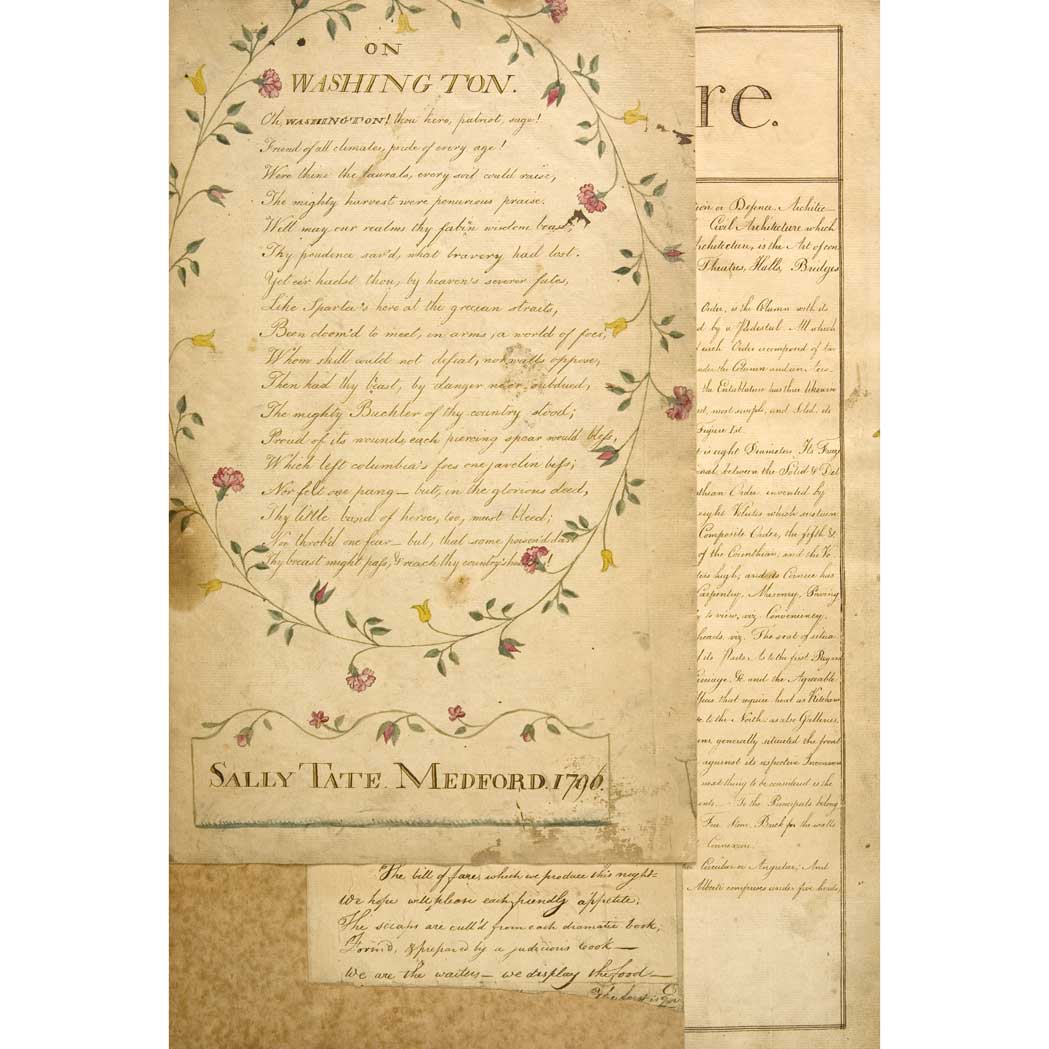 ON
WASHINGTON.
Oh, WASHINGTON! thou hero, patriot, sage!
Friend of all climates, pride of every age!
Were thine the laurals, every soil could raise,
The mighty harvest were penurious praise.
Well may our realms thy fabin wisdom boast;
Thy prudence sav'd, what bravery had lost.
Yet e'er hadst thou, by heaven's severer fates,
Like Sparta's hero at the grecian straits,
Been doom'd to meet, in arms, a world of foes,
Whom skill could not defeat, nor walls oppose,
Then had thy breast, by danger ne'er subdued,
The mighty Buckler of thy country stood;
Proud of its wounds, each piercing spear would bless,
Which left columbia's foes one javelin less;
Nor felt one pang — but, in the glorious deed,
Thy little band of heroes, too, must bleed;
Nor throb'd one fear — but, that some poison'd dart
Thy breast might pass, & reach thy country's !
SALLY TATE. MEDFORD. 1796.
The bill of fare, which we produce this night =
We hope will please each friendly appetite;
The scraps are cull'd from each dramatic book,
Form'd, & prepared by a judicious cook —
We are the waiters — we display the food —
re.
or Defence. Architic—
Civil Architecture which
Architecture, is the Art of con
Theatres, Halls, Bridges
Order, is the Column with its
by a Pedestal. All which
each Order is composed of
under the Column and an
the Entablature has three
most simple, and Solid, its
Figure 1st.
is eight Diameters. Its
between the Solid & Del
Order invented by
eight Volutes which sustain
Composite Order, the fifth &
of the Corinthian, and the
high, and its Cornice has
Carpentry, Masonry, Paving
to view, viz. Conveniency,
heads, viz. The seat of
its Parts. As to the first
&c. and the Agreable
that require heat as Kitchens
to the North. as also Galleries,
generally situated the front
against its respective
next thing to be considered is the
To the Principals belong
Free Stone, Brick for the walls
Connexion.
Circular or Angular, And
Alberti comprises under five heads,